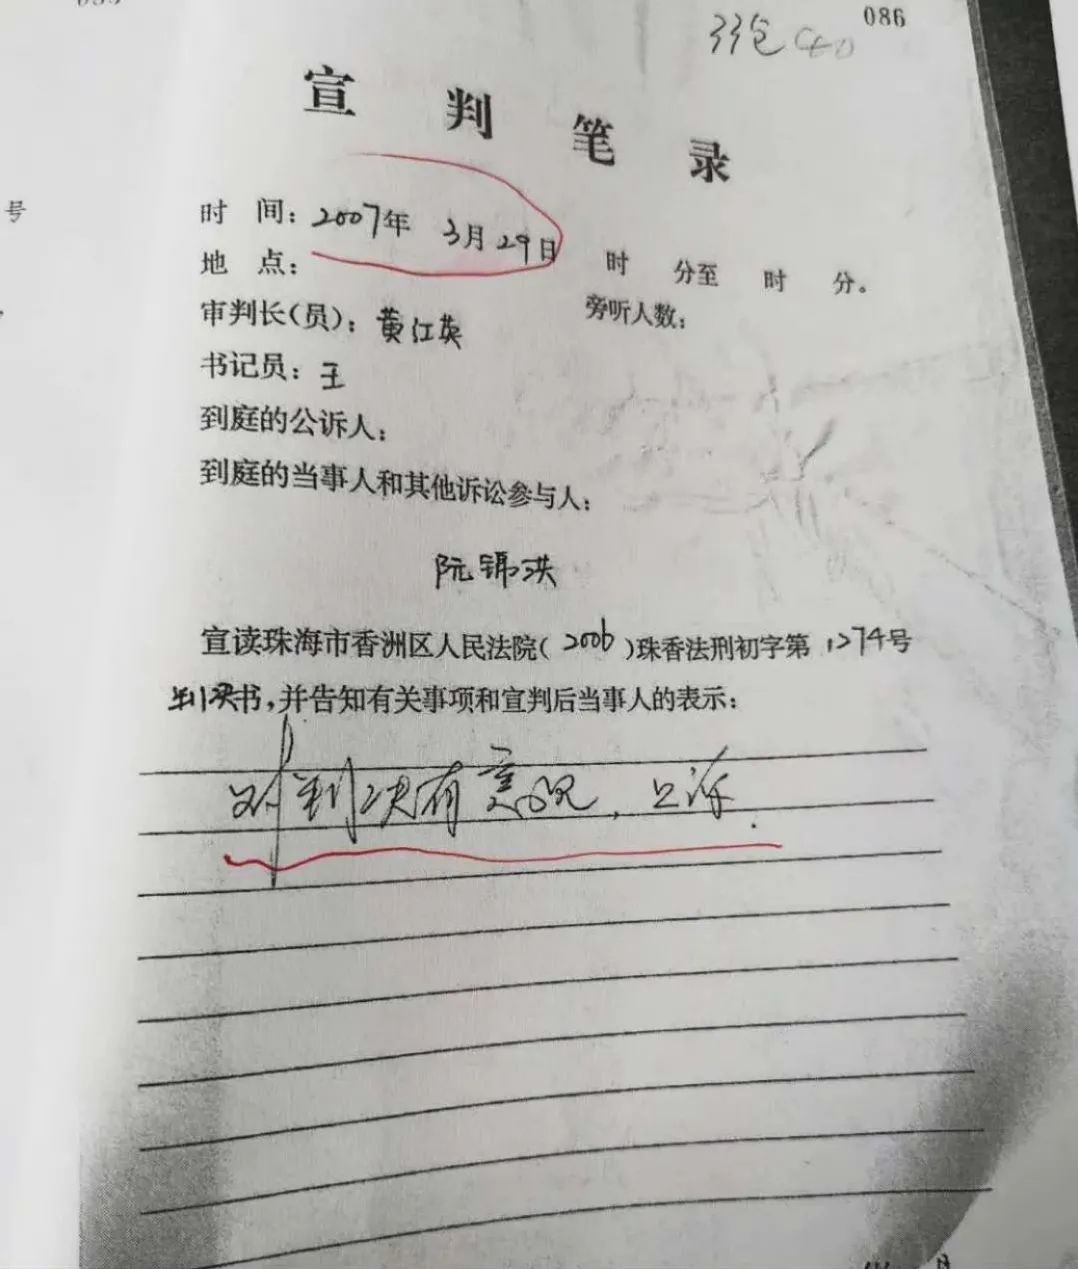 086
宣判笔录
时 间：2007年 3月29日 时 分至 时 分。
地 点： 旁听人数：
审判长（员）：黄江英
书记员：王
到庭的公诉人：
到庭的当事人和其他诉讼参与人：
阮锦洪
宣读珠海市香洲区人民法院（2006）珠香法刑初字第1274号
判决书，并告知有关事项和宣判后当事人的表示：
对判决有意见，上诉.
号